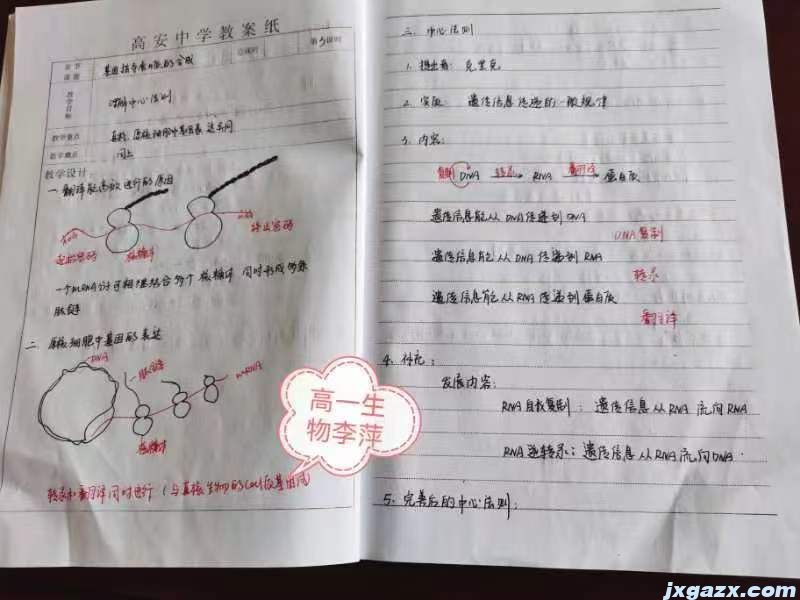 高安中学教案纸
章节
课题
基因指导蛋白质的合成
总课时
第3课时
教学目标
理解中心法则
教学重点
真核、原核细胞中基因表达异同
教学难点
同上
教学设计:
一 翻译能高效进行的原因
起始密码
核糖体
终止密码
一个mRNA分子可相继结合多个核糖体 同时形成多条
肽链
二、原核细胞中基因的表达
DNA
肽链
mRNA
核糖体
转录和翻译同时进行
高一生
物李萍
三、中心法则
1. 提出者: 克里克
2. 实质 遗传信息传递的一般规律
3. 内容:
复制 DNA 转录 RNA 翻译 蛋白质
遗传信息能从DNA传递到DNA
DNA复制
遗传信息能从DNA传递到RNA
转录
遗传信息能从RNA传递到蛋白质
翻译
4. 补充:
发展内容:
RNA自我复制: 遗传信息从RNA流向RNA
RNA逆转录: 遗传信息从RNA流向DNA.
5. 完善后的中心法则:
jxgazx.com